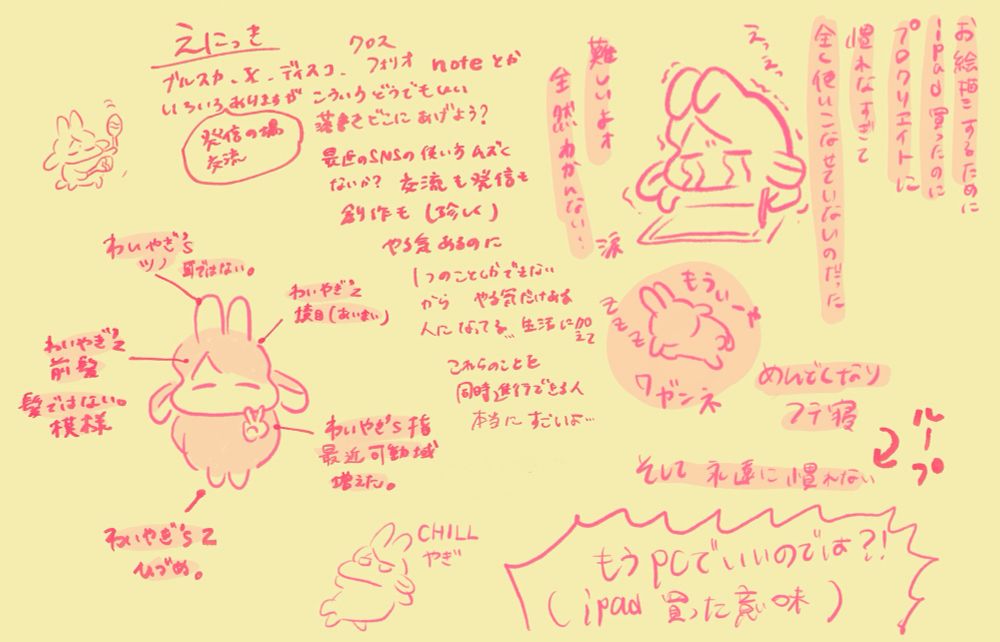 えにっき
ブルスカ、X、ディスコ、クロスフォリオ noteとか
いろいろありますが こういうどうでもいい
落書きどこにあげよう?
発信の場
交流
最近のSNSの使い方ムズく
ないか? 交流も発信も
創作も(珍しく)
やる気あるのに
1つのことしかできない
から やる気だけある
人になってる… 生活に加えて
これらのことを
同時進行できる人
本当にすごいよ…
お絵描きするために
ipad買ったのに
プロクリエイトに
慣れなすぎて
全く使いこなせていないのだった
えっえっ
難しいよォ
全然わかんない…
もういーや
ZZZZ
フガンネ
めんどくなり
フテ寝
ループ
そして永遠に慣れない
もうPCでいいのでは?!
(ipad買った意味)
わいやぎ's
ツノ 耳ではない。
わいやぎ's
境目(あいまい)
わいやぎ's
前髪
髪ではない。
模様
わいやぎ's指
最近可動域
増えた。
わいやぎ's
ひづめ。
CHILL
やぎ